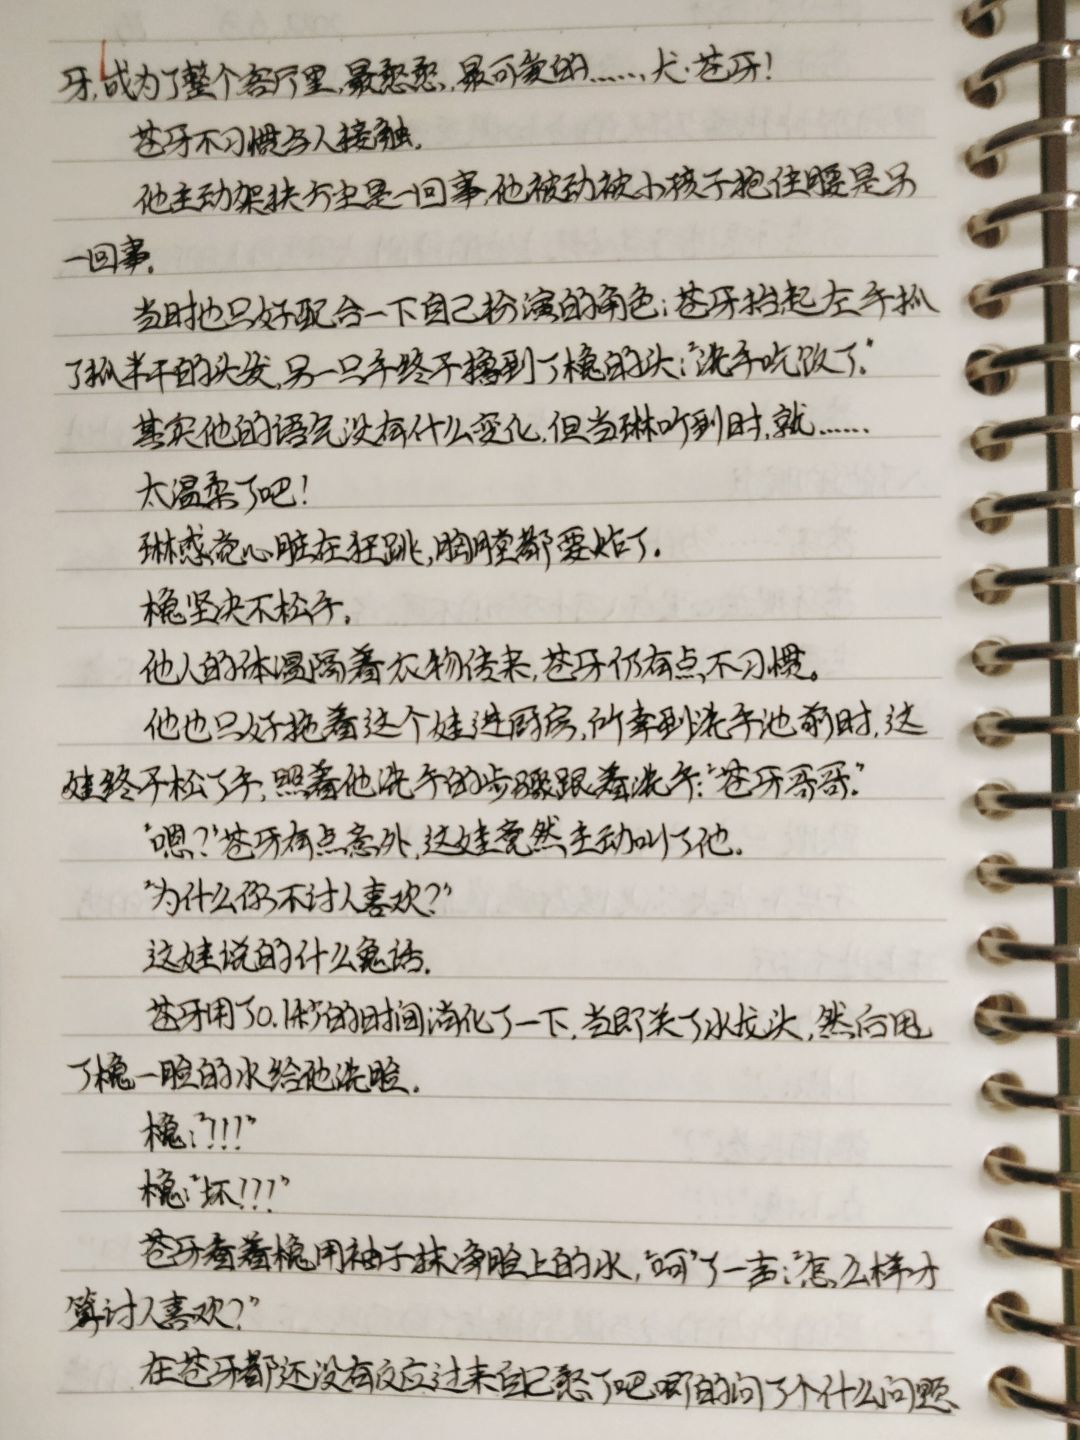 牙,成为了整个客厅里,最憨憨,最可爱的……,犬·苍牙!
苍牙不习惯与人接触。
他主动架扶方尘是一回事,他被动被小孩子抱住腰是另
一回事。
当时也只好配合一下自己扮演的角色;苍牙抬起左手抓
了抓半干的头发,另一只手终于撸到了槐的头:"洗手吃饭了。"
其实他的语气没有什么变化,但当琳听到时,就……
太温柔了吧!
琳感觉心脏在狂跳,胸膛都要炸了。
槐坚决不松手。
他人的体温隔着衣物传来,苍牙仍有点不习惯。
他也只好拖着这个娃进厨房,所幸到洗手池前时,这
娃终于松了手,照着他洗手的步骤跟着洗手:"苍牙哥哥。"
"嗯?"苍牙有点意外,这娃竟然主动叫了他。
"为什么你不讨人喜欢?"
这娃说的什么鬼话。
苍牙用了0.1秒的时间消化了一下,当即关了水龙头,然后甩
了槐一脸的水给他洗脸。
槐:"!!!"
槐:"坏!!!"
苍牙看着槐用袖子抹净脸上的水,"呵"了一声:"怎么样才
算讨人喜欢?"
在苍牙都还没有反应过来自己憨了吧唧的问了个什么问题